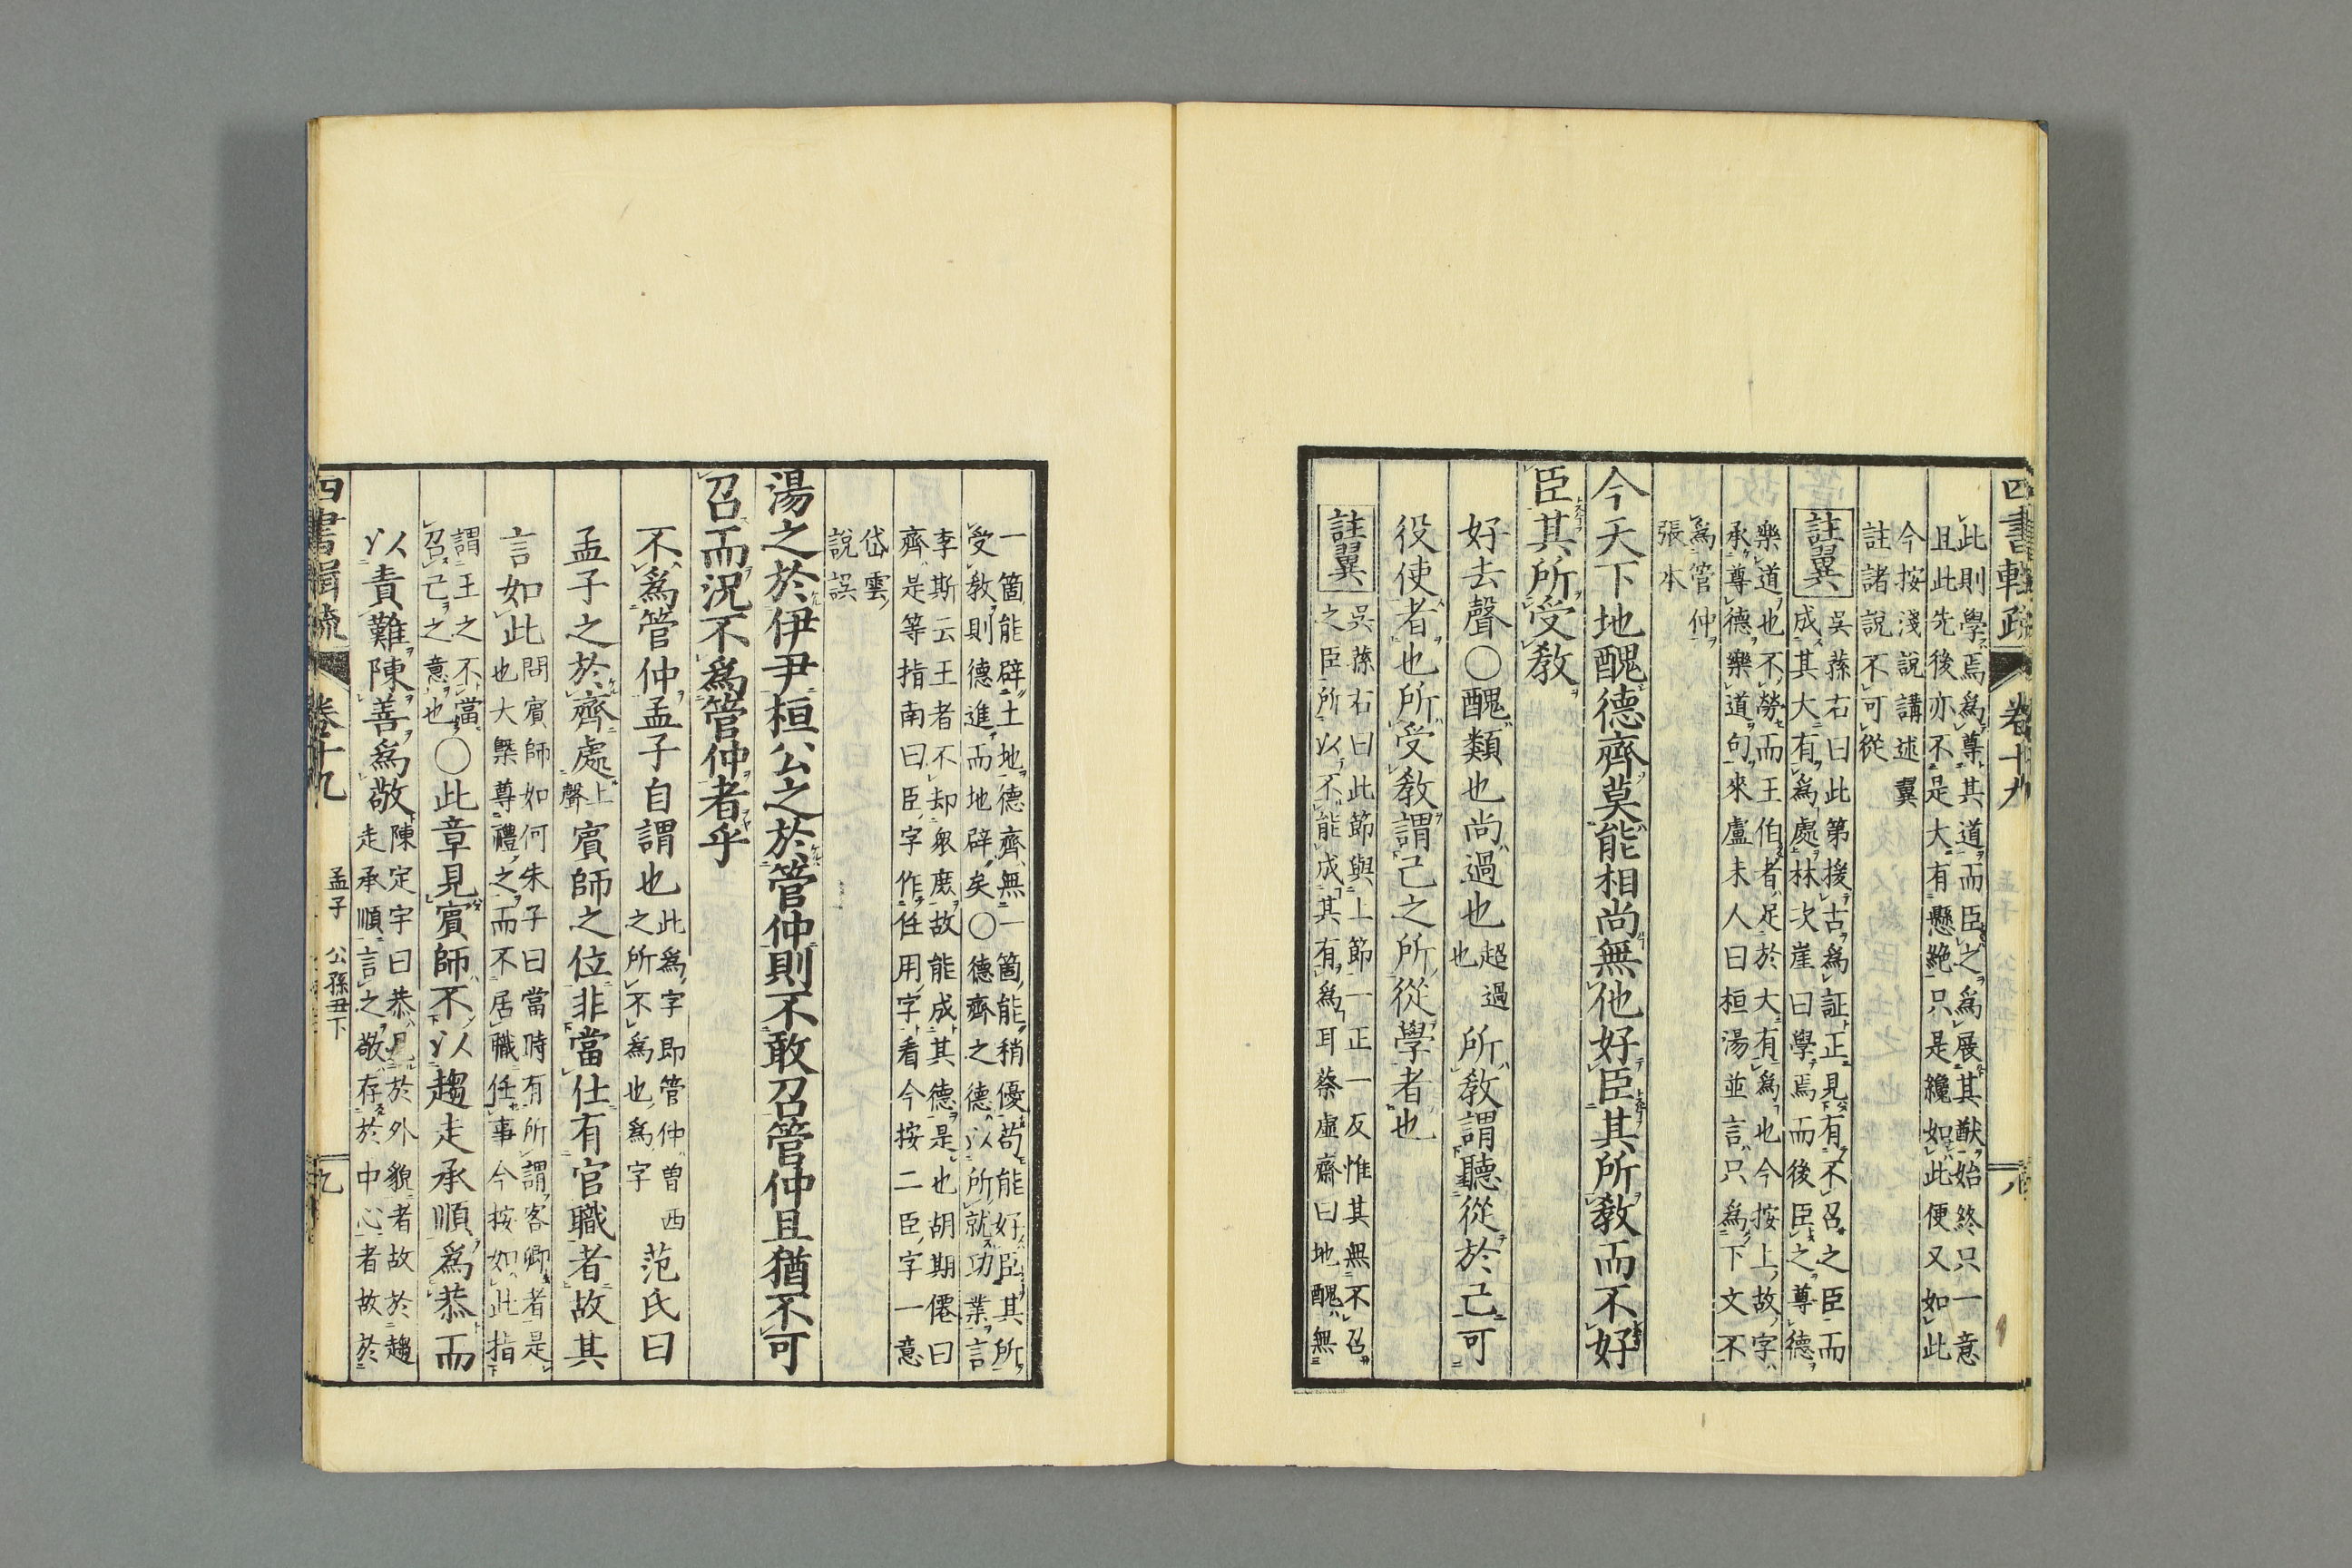 四書輯疏 卷十九 八
此則學焉爲尊其道而臣之爲展其猷始終只一意
且此先後亦不是大有懸絶只是纔如此便又如此
今按淺說講述翼
註諸說不可從
註翼
吳蓀右曰此第援古爲証正見有不召之臣而
成其大有爲處林次崖曰學焉而後臣之尊德
樂道也不勞而王伯者足於大有爲也今按上故字
承尊德樂道句來盧未人曰桓湯並言只爲下文不
爲管仲
張本
今天下地醜德齊莫能相尚無他好臣其所敎而不好
臣其所受敎
好去聲〇醜類也尚過也
超過
也
所敎謂聽從於己可
役使者也所受敎謂己之所從學者也
註翼
吳蓀右曰此節與上節一正一反惟其無不召
之臣所以不能成其有爲耳蔡虛齋曰地醜無
一箇能辟土地德齊無一箇能稍優苟能好臣其所
受敎則德進而地辟矣〇德齊之德以所就功業言
李斯云王者不却衆庶故能成其德是也胡期僊曰
齊是等指南曰臣字作任用字看今按二臣字一意
岱雲
說誤
湯之於伊尹桓公之於管仲則不敢召管仲且猶不可
召而況不爲管仲者乎
不爲管仲孟子自謂也
此爲字即管仲曽西
之所不爲也爲字
范氏曰
孟子之於齊處
上
聲
賓師之位非當仕有官職者故其
言如此
問賓師如何朱子曰當時有所謂客卿者是
也大槩尊禮之而不居職任事今按如此指
謂王之不當
召己之意也
〇此章見賓師不以趨走承順爲恭而
以責難陳善爲敬
陳定宇曰恭見於外貌者故於趨
走承順言之敬存於中心者故於
四書輯疏 卷十九 孟子 公孫丑下 九